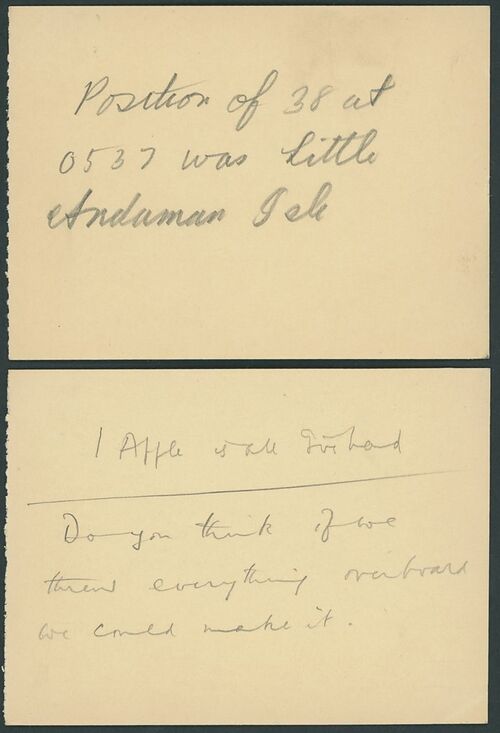 Position of 38 at
0537 was Little
Andaman Isle
1 Apple is all
Do you think if we
threw everything overboard
we could make it.